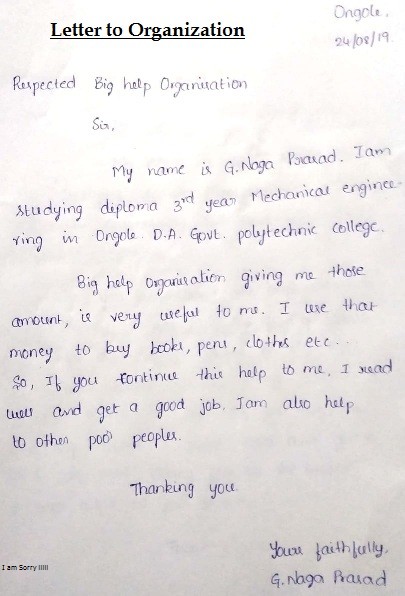 Ongole,
Letter to Organization
24/08/19.
Respected Big help Organisation
Sir,
My name is G. Naga Prasad. I am
studying diploma 3rd year Mechanical enginee-
ring in Ongole D.A. Govt. polytechnic college.
Big help organisation giving me those
amount, is very useful to me. I use that
money to buy books, pens, clothes etc...
So, If you continue this help to me, I read
well and get a good job. I am also help
to other poor peoples.
Thanking you.
Yours faithfully,
I am Sorry !!!!!
G. Naga Prasad